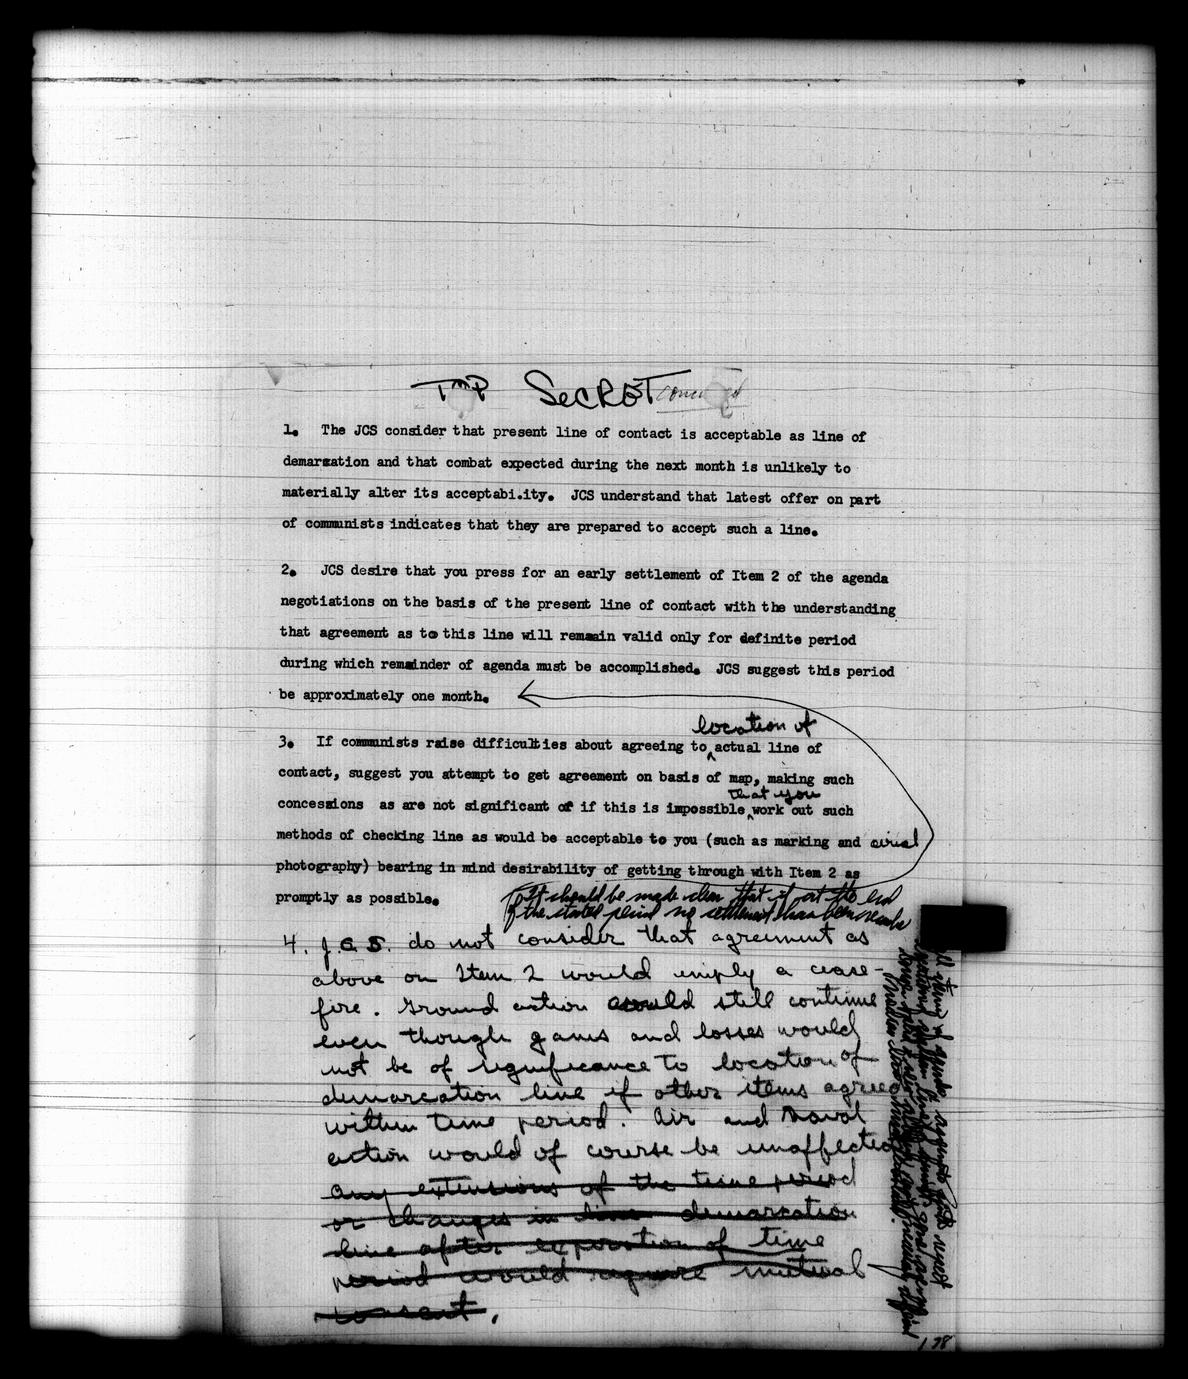 TOP SECRET
1. The JCS consider that present line of contact is acceptable as line of
demarcation and that combat expected during the next month is unlikely to
materially alter its acceptability. JCS understand that latest offer on part
of communists indicates that they are prepared to accept such a line.
2. JCS desire that you press for an early settlement of Item 2 of the agenda
negotiations on the basis of the present line of contact with the understanding
that agreement as to this line will remain valid only for definite period
during which remainder of agenda must be accomplished. JCS suggest this period
be approximately one month.
location of
3. If communists raise difficulties about agreeing to actual line of
contact, suggest you attempt to get agreement on basis of map, making such
that you
concessions as are not significant or if this is impossible work out such
methods of checking line as would be acceptable to you (such as marking and aerial
photography) bearing in mind desirability of getting through with Item 2 as
promptly as possible.
It should be made clear that if at the end
of the stated period no settlement has been reached
4. J.C.S. do not consider that agreement as
above on Item 2 would imply a cease-
fire. Ground action would still continue
even though gains and losses would
not be of significance to location of
demarcation line if other items agreed
within time period. Air and Naval
action would of course be unaffected
any extensions of the time period
or changes in line demarcation
line after expiration of time
period would require mutual
consent.